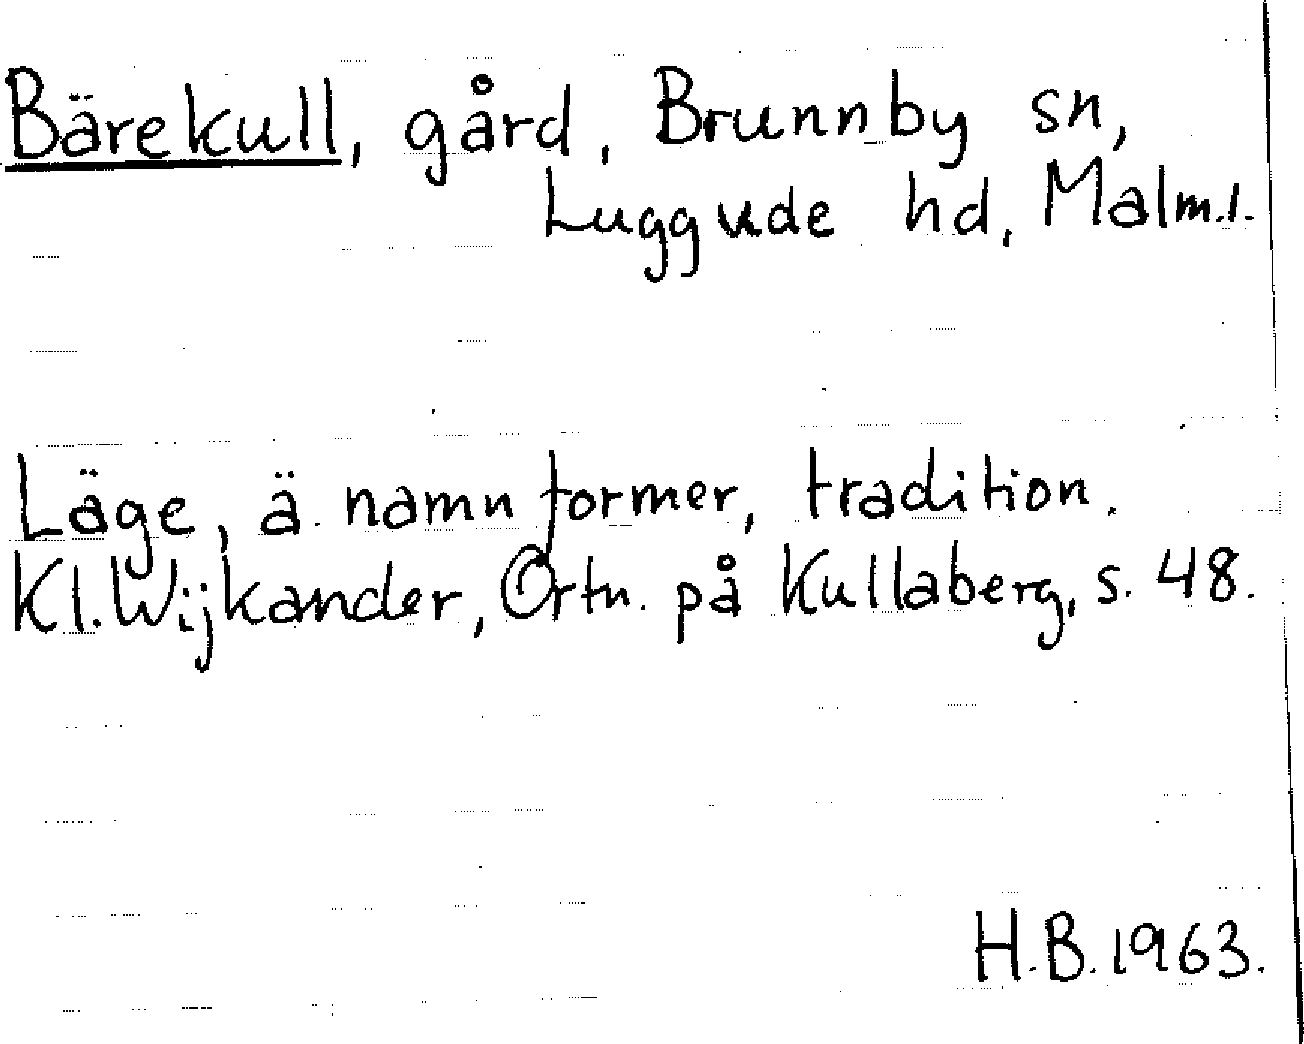 Bärekull, gård, Brunnby sn,
Luggude hd, Malm.l.
Läge, ä. namnformer, tradition.
Kl. Wijkander, Ortn. på Kullaberg, s. 48.
H.B. 1963.